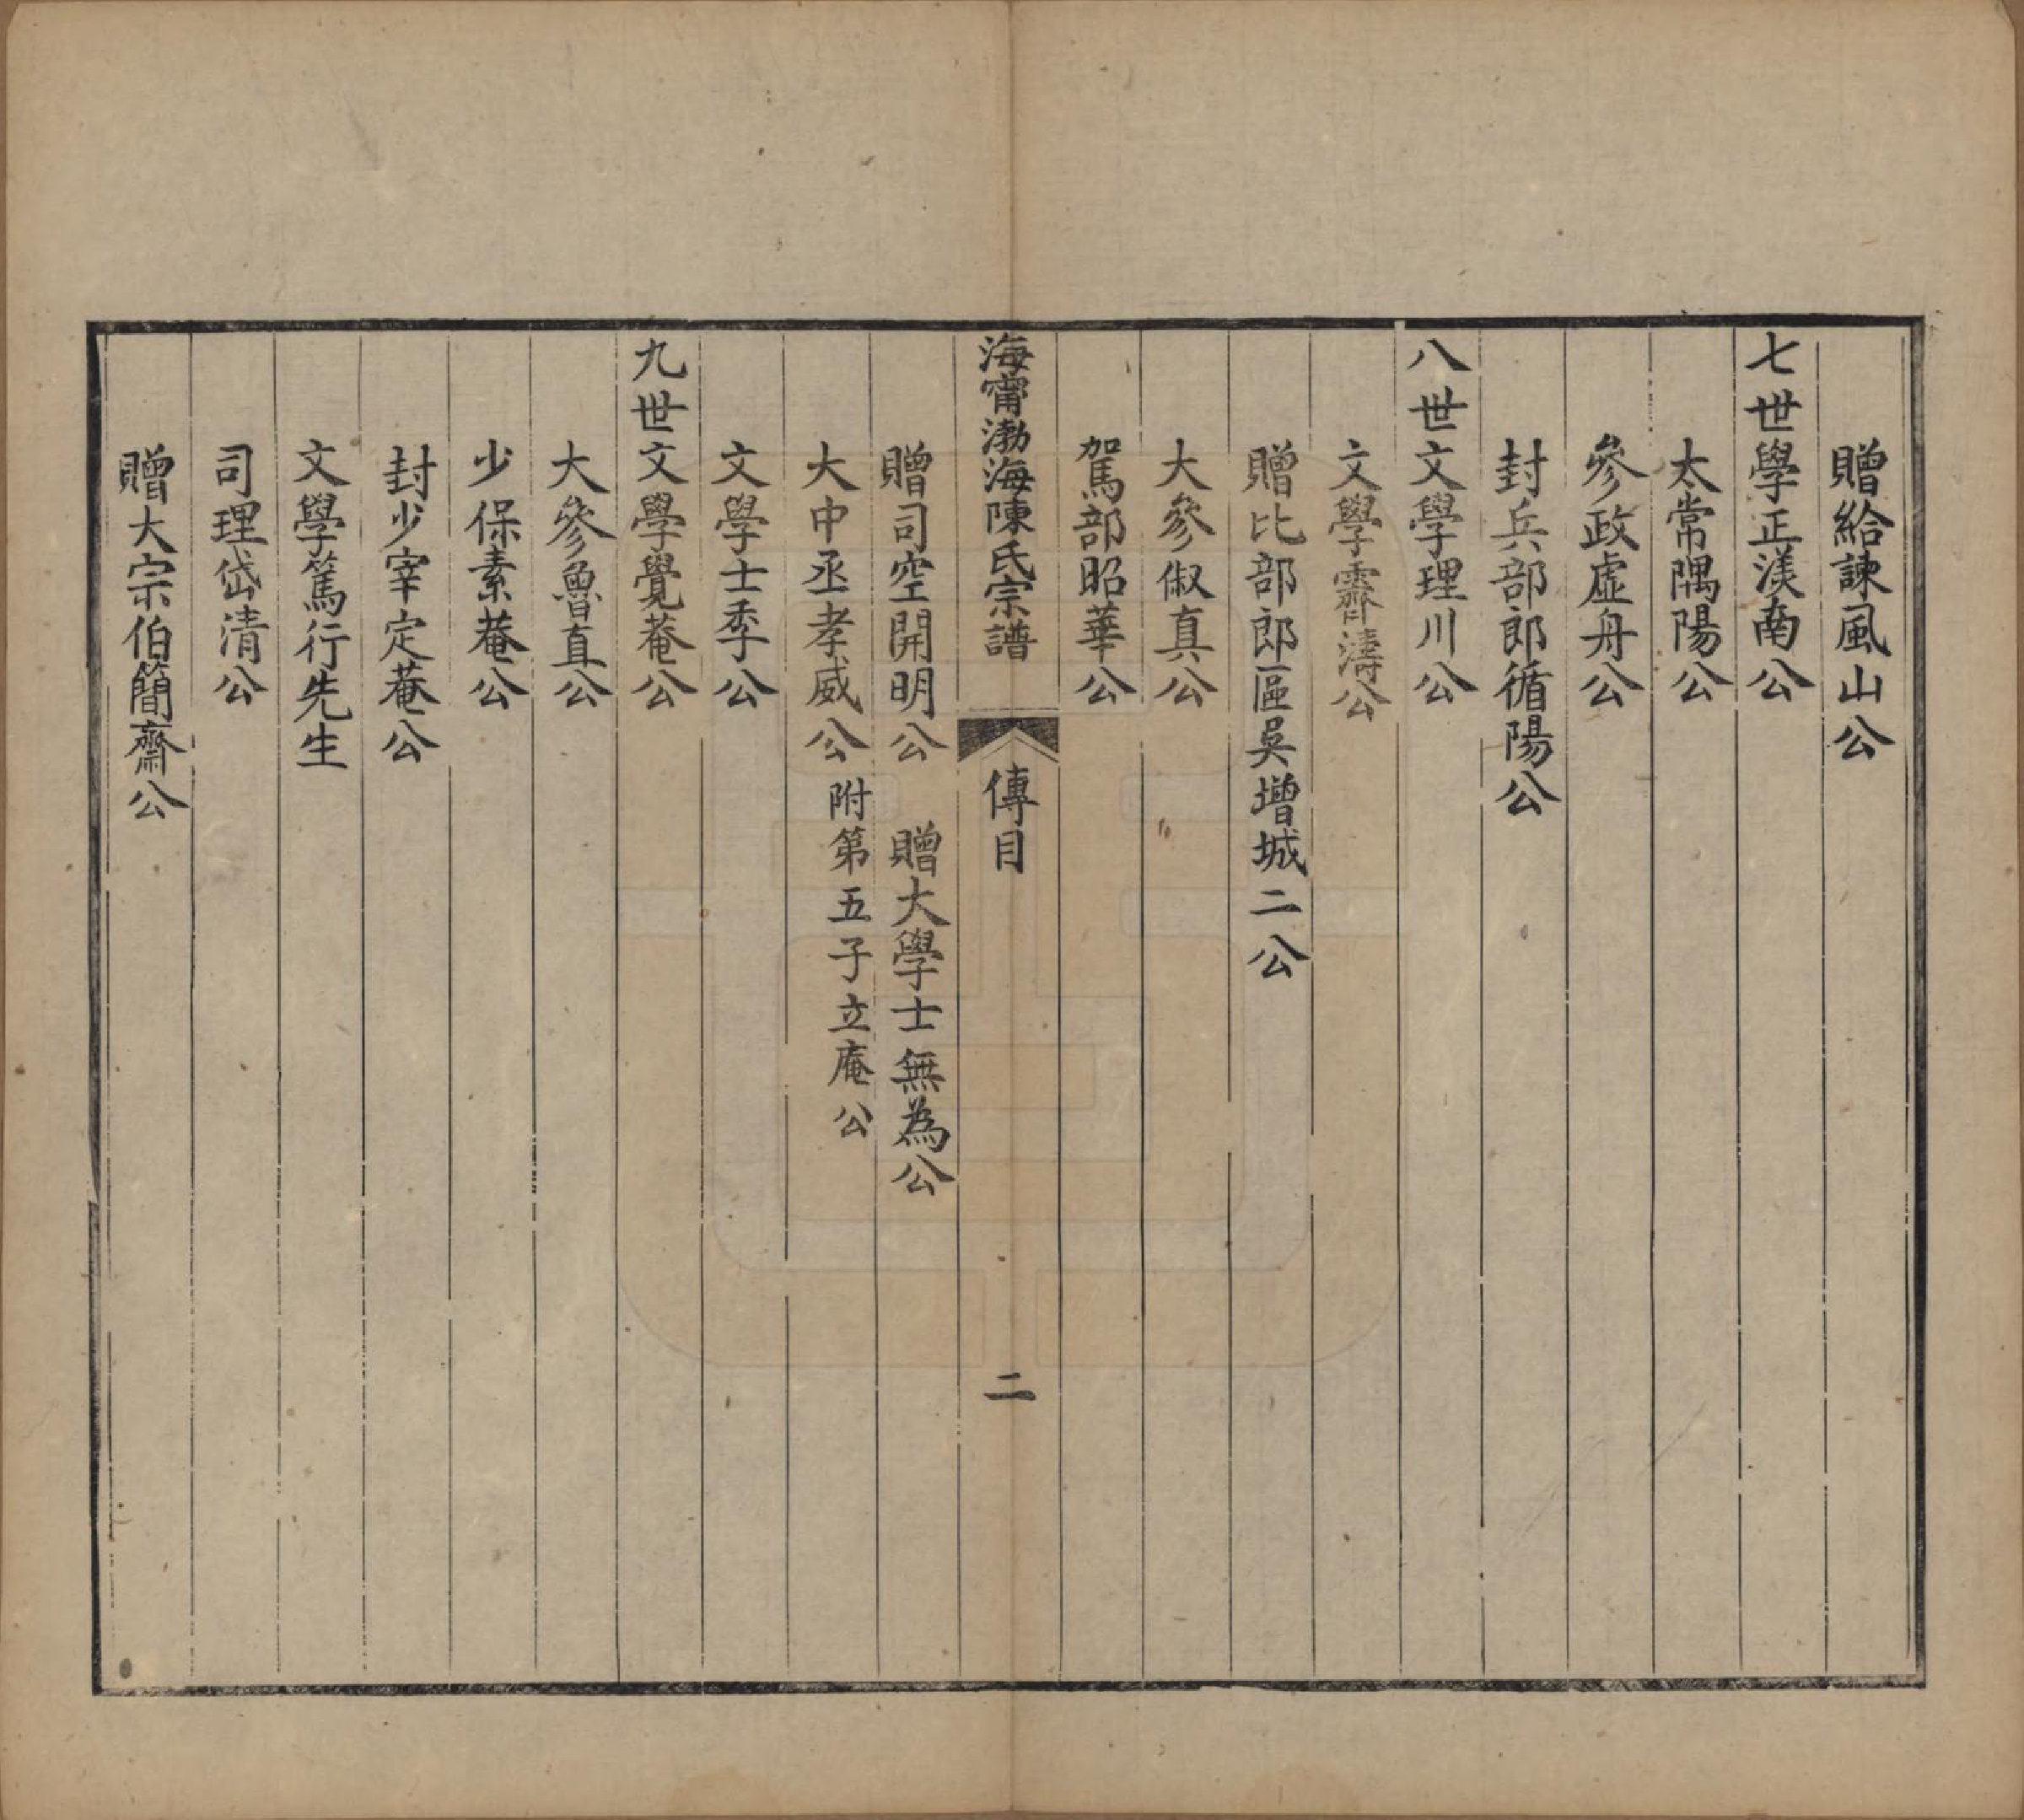 贈給諫風山公
七世學正渼南公
太常隅陽公
參政虛舟公
封兵部郎循陽公
八世文學理川公
文學霽濤公
贈比部郎區吳增城二公
大參俶真公
駕部昭華公
海甯渤海陳氏宗譜 傳目 二
贈司空開明公 贈大學士無為公
大中丞孝威公 附第五子立庵公
文學士季公
九世文學覺菴公
大參魯直公
少保素菴公
封少宰定菴公
文學篤行先生
司理岱清公
贈大宗伯簡齋公